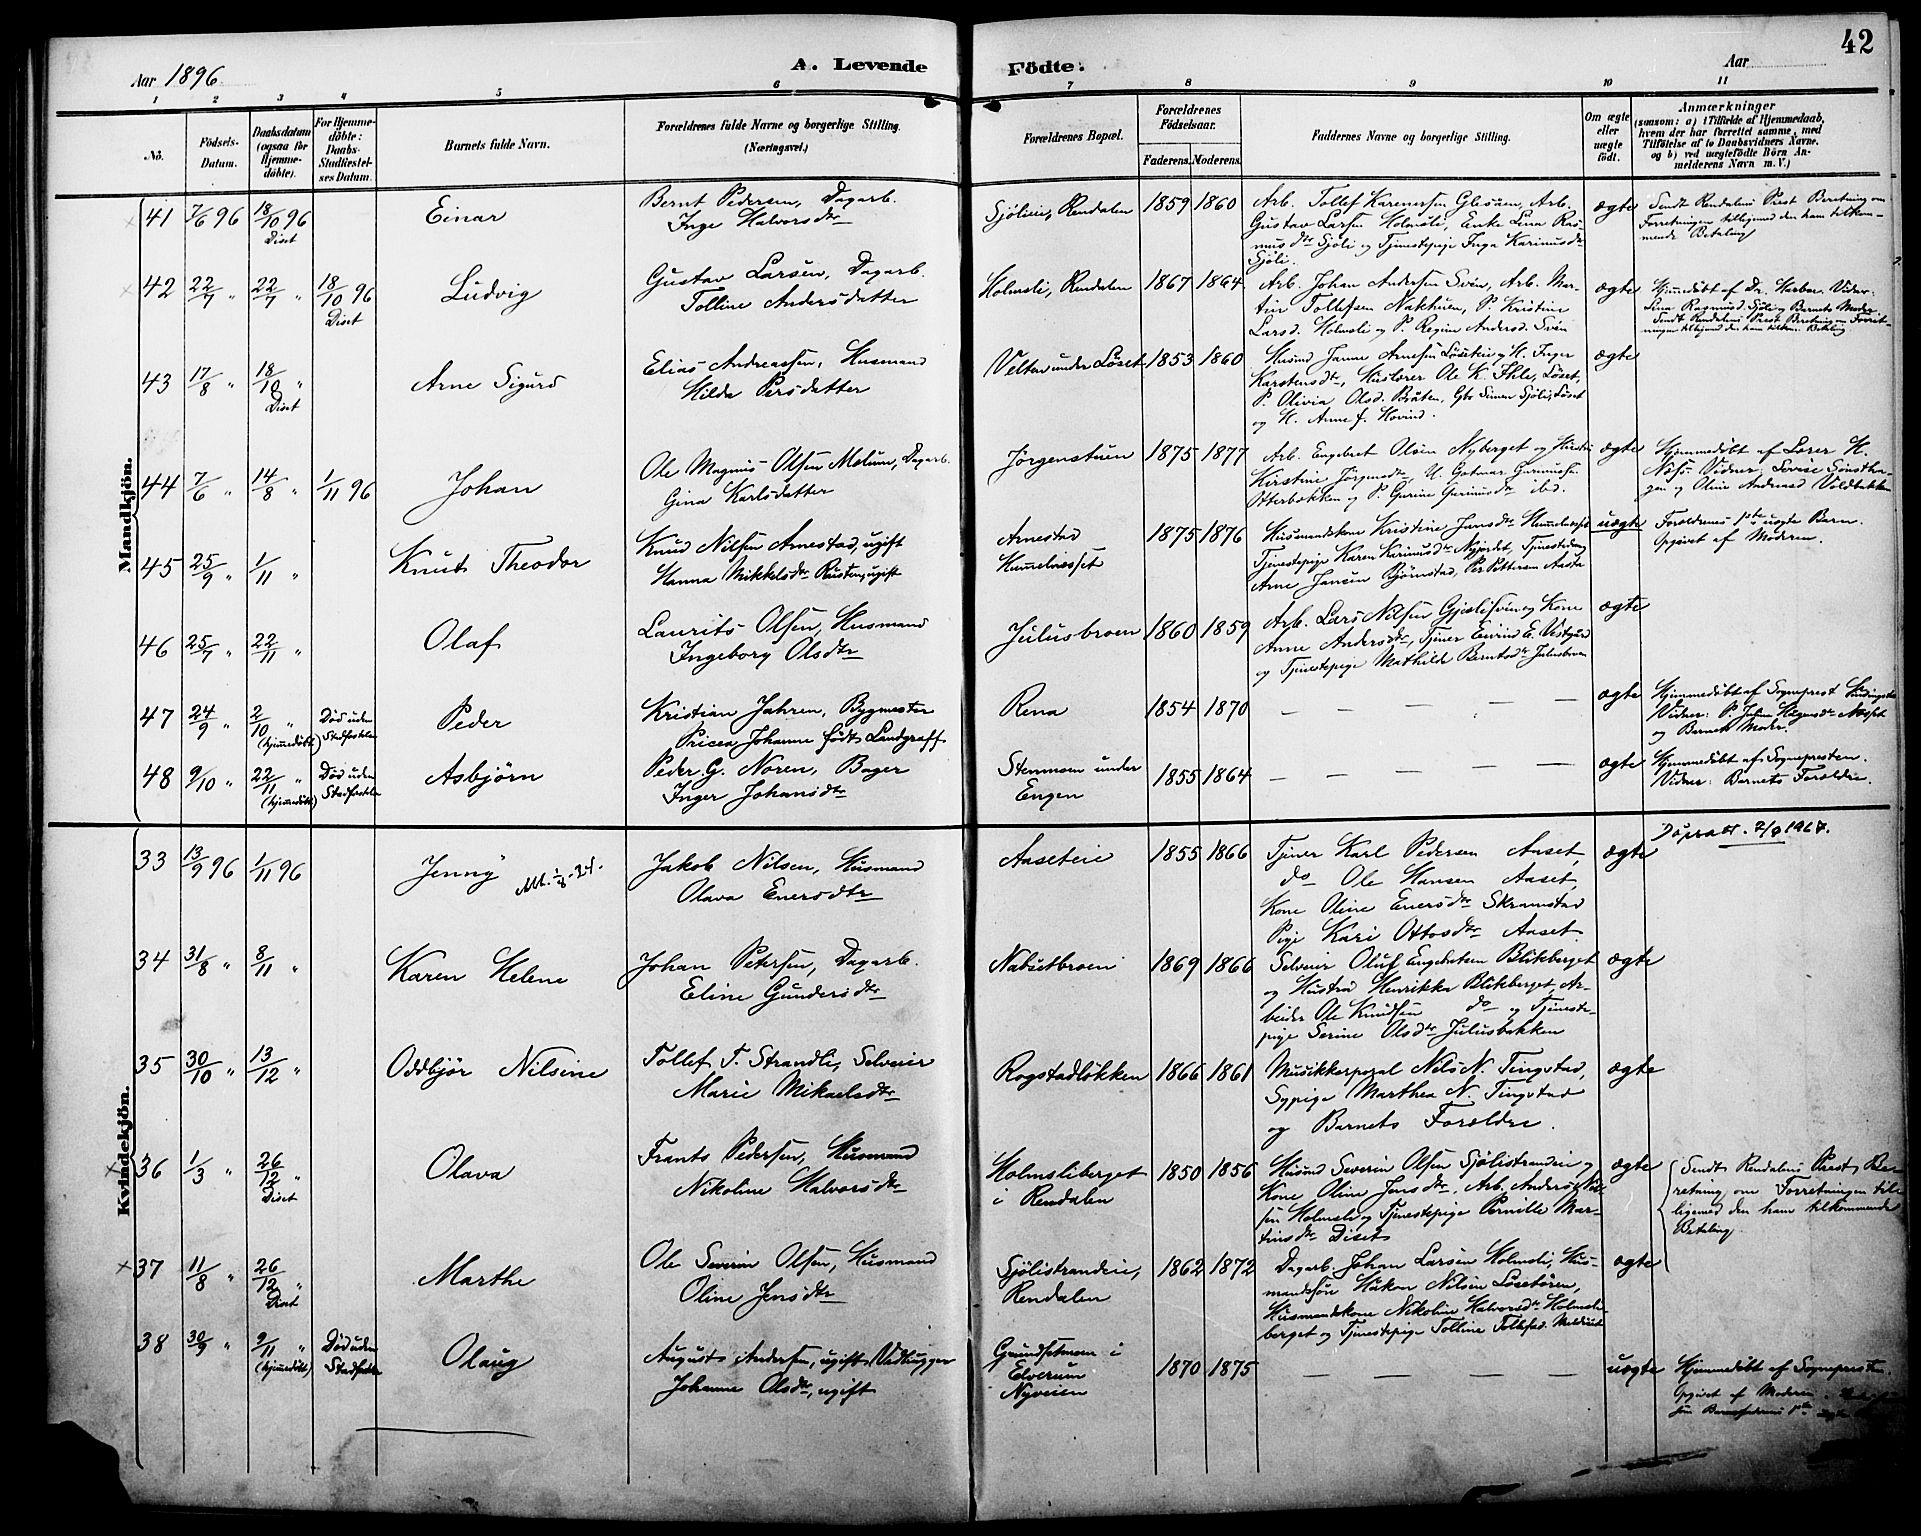 42
Aar 1896
A. Levende
Födte.
Aar
1 2 3 4 5 6 7 8 9 10 11
No.
Födsels-
Datum.
Daabsdatum
(ogsaa for
Hjemme-
döbte).
For Hjemme-
döbte:
Daabs-
Stadfæstel-
ses Datum.
Barnets fulde Navn.
Forældrenes fulde Navne og borgerlige Stilling.
(Næringsvei.)
Forældrenes Bopæl.
Forældrenes
Födselsaar.
Faderens. Moderens.
Faddernes Navne og borgerlige Stilling.
Om ægte
eller
uægte
födt.
Anmærkninger
(saasom: a) i Tilfælde af Hjemmedaab,
hvem der har forrettet samme, med
Tilföielse af to Daabsvidners Navne.
og b) ved uægtefödte Börn An-
melderens Navn m. V.)
Mandkjön.
41 7/6 96 18/10 96
Diset
Einar
Bernt Pedersen, Dagarb.
Inge Halvorsdtr
Sjöliei, Rendalen
1859 1860
Arb. Tollef Glesåen, Arb.
Gustav Larsen Holmsli, Enke Lina Ras-
musdtr Sjöli og Tjenestepige Inga Karinusdtr
Sjöli.
ægte
Sendt Rendalens Prest Beretning om
Forretningen tilligemed den ham tilkom-
mende Betaling
42 22/7 " 22/7 " 18/10 96
Diset
Ludvig
Gustav Larsen, Dagarb.
Tolline Andersdatter
Holmsli, Rendalen
1867 1864
Arb. Johan Andersen Svèn, Arb. Mar-
tin Tollefsen Nakhuen, P. Kristine
Larsd. Holmsli og P. Regine Andersd. Svèn
ægte
Hjemmedöbt af Dr. Harboe. Vidner:
Lina Rasmusd. Sjöli og Barnets Moder
Sendt Rendalens Prest Beretning om Forret-
ningen tilligemed den ham tilkom. Betaling
43 17/8 " 18/10 "
Diset
Arne Sigurd
Elias Andreassen, Husmand
Hilda Persdatter
Velta under Löset
1853 1860
Husmd Janne Arnesen Löseteie og K. Inger
Karstensdtr, Huslærer Ole K. Ihle, Löset,
P. Olivia Olsd. Bråten, Gbr Simen Sjöli, Löset
og K. Anne f. Hovind.
ægte
44 7/6 " 14/8 " 1/11 96
Johan
Ole Magnus Olsen Melum, Dagarb.
Gina Karlsdatter
Jörgenstuen
1875 1877
Arb. Engebret Olsen Nyberget og Hustru
Kirstine Jörgensdtr, U. Gunnusen
Otterbekken og P. Gurine Gurinusdtr ibd.
ægte
Hjemmedöbt af Lærer H.
Næss. Vidner: Lovise Sönsthа-
gen og Oline Andersd Voldbakken
45 25/9 " 1/11 "
Knut Theodor
Knud Nilsen Arnestad, ugift
Hanna Mikkelsdtr Rusten, ugift
Arnestad
Hummelvasset
1875 1876
Husmandskone Kristine Jansdtr
Tjenestepige Karen Karinusdtr Nyjordet, Tjenestedreng
Arne Jansen Björnstad, Per Pettersen Aasta
uægte
Forældrenes 1ste uægte Barn.
Opgivet af Moderen.
46 25/7 " 22/11 "
Olaf
Laurits Olsen, Husmand
Ingeborg Olsdtr
Julusbroen
1860 1859
Arb. Lars Nilsen og Kone
Anne Andersdtr, Tjener Eivind E. Vestgard
og Tjenestepige Mathilde Berntsdtr Julusbroen
ægte
47 24/9 " 2/10 "
(hjemmedöbt)
Död uden
Stadfæstelse
Peder
Kristian Jahren, Bygmester
Johanne födt Landgraff
Rena
1854 1870
— — — — —
ægte
Hjemmedöbt af Sogneprest
Vidner: P. Julie
og Barnets Moder.
48 9/10 " 22/11 "
(hjemmedöbt)
Död uden
Stadfæstelse
Asbjörn
Peder G. Noren, Bager
Inger Johansdtr
Stenmoen under
Engen
1855 1864
— — — — —
ægte
Hjemmedöbt af Sognepresten.
Vidner: Barnets Forældre.
Kvindekjön.
33 13/9 96 1/11 96
Jenny Att. 1/8-24.
Jakob Nilsen, Husmand
Olava Enersdtr
Aaseteie
1855 1866
Tjener Karl Pedersen Aaset,
do Ole Hansen Aaset,
Kone Oline Enersdtr Skramstad
Pige Kari Ottosdtr Aaset.
ægte
Dåpsatt. 7/9 1967.
34 31/8 " 8/11 "
Karen Helene
Johan Petersen, Dagarb.
Eline Gundersdtr
Nabsetbroen
1869 1866
Selveier Oluf Engebretsen Blikberget
og Hustru Henrikka Blikberget, Ar-
beider Ole Knudsen do og Tjeneste-
pige Serine Olsdtr Julusbakken
ægte
35 30/10 " 13/12 "
Oddbjör Nilsine
Tollef T. Strandli, Selveier
Marie Mikaelsdtr
Rogstadlökken
1866 1861
Musikkorporal Nils N. Tingstad,
Sypige Marthea N. Tingstad
og Barnets Forældre.
ægte
36 1/3 " 26/12 "
Diset
Olava
Frants Pedersen, Husmand
Nikoline Halvorsdtr
Holmsliberget
i Rendalen
1850 1856
Husmd Severin Olsen Sjölistrandeie og
Kone Oline Jensdtr, Arb. Anders Niel-
sen Holmsli og Tjenestepige Pernille Mar-
tinsdtr Diset
ægte
Sendt Rendalens Prest Be-
retning om Forretningen til-
ligemed den ham tilkommende
Betaling.
37 11/8 " 26/12 "
Diset
Marthe
Ole Severin Olsen, Husmand
Oline Jensdtr
Sjölistrandeie,
Rendalen
1862 1872
Dagarb. Johan Larsen Holmsli, Hus-
mandssön Håkon Nilsen Lösetören,
Husmandskone Nikoline Halvorsdtr Holmsli-
berget og Tjenestepige Tolline Tollefsd.
ægte
38 30/9 " 9/11 "
(hjemmedöbt)
Död uden
Stadfæstelse
Olaug
August Andersen, ugift Vedhugger
Johanne Olsdtr, ugift
Grundsetmoen i
Elverum
Nyveien
1870 1875
— — — — —
uægte
Hjemmedöbt af Sognepresten.
Opgivet af Moderen.